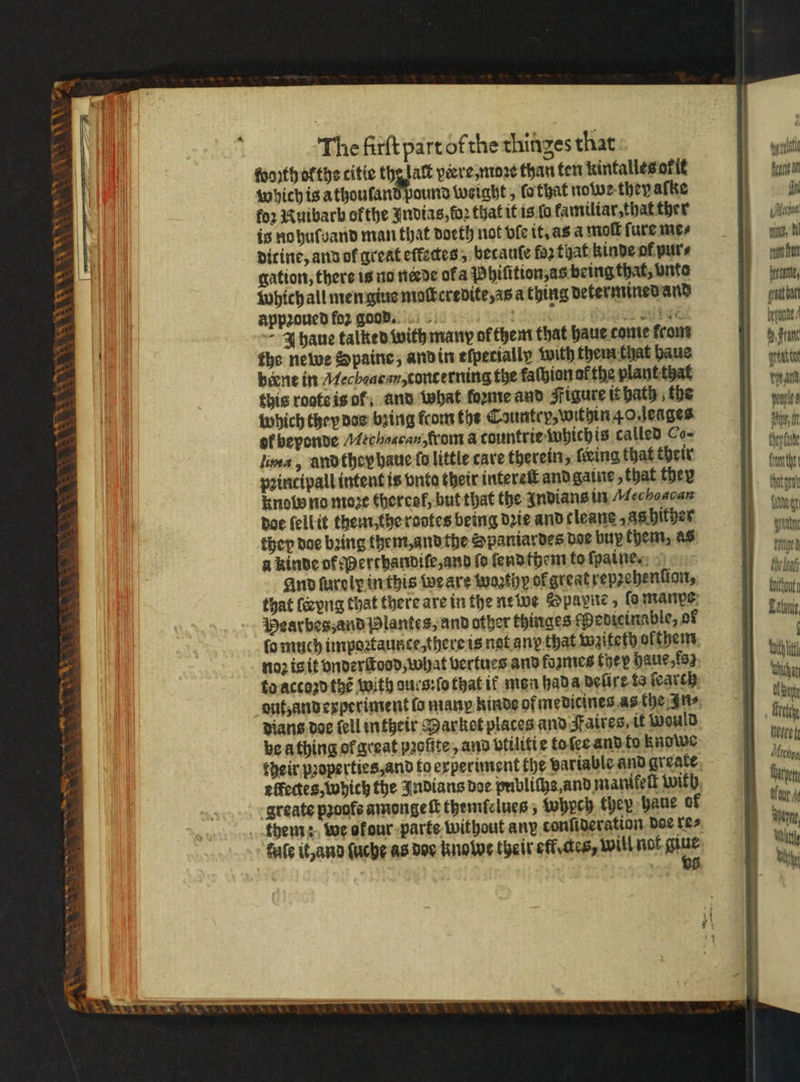 The firſt part of the thinges that
foorth of the citie the laſt yéere, more than ten kintalles of it
which is a thouſand pound weight, ſo that nowe they aſke
for Ruibarb of the Indias, for that it is ſo familiar, that ther
is no huſband man that doeth not vſe it, as a moſt ſure me-
dicine, and of great effectes, becauſe for that kinde of pur-
gation, there is no néede of a Phiſition, as being that, vnto
which all men giue moſt credite, as a thing determined and
approued for good.
I haue talked with many of them that haue come from
the newe Spaine, and in eſpecially with them that haue
béene in Mechoacan, concerning the faſhion of the plant that
this roote is of, and what forme and Figure it hath, the
which they doe bring from the Countrey, within 40. leages
of beyonde Mechoacan, from a countrie which is called Co-
lima, and they haue ſo little care therein, ſéeing that their
principall intent is vnto their intereſt and gaine, that they
know no more thereof, but that the Indians in Mechoacan
doe ſell it them, the rootes being drie and cleane, as hither
they doe bring them, and the Spaniardes doe buy them, as
a kinde of Merchandiſe, and ſo ſend them to ſpaine.
And ſurely in this we are worthy of great reprehenſion,
that ſéeyng that there are in the newe Spayne, ſo manye
Hearbes, and Plantes, and other thinges Medicinable, of
ſo much importaunce, there is not any that writeth of them
nor is it vnderſtood, what vertues and formes they haue, for
to accord thē with ours: ſo that if men had a deſire to ſearch
out, and experiment ſo many kinde of medicines as the In-
dians doe ſell in their Market places and Faires, it would
be a thing of great profite, and vtilitie to ſee and to knowe
their properties, and to experiment the variable and greate
effectes, which the Indians doe publiſhe, and manifeſt with
greate proofe amongeſt themſelues, whych they haue of
them: we of our parte without any conſideration doe re-
fuſe it, and ſuche as doe knowe their effectes, will not giue
vs